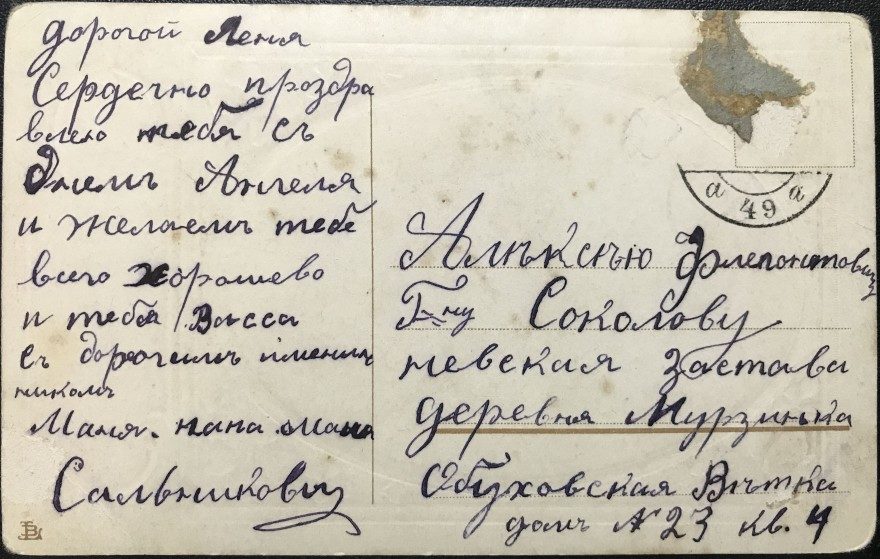 дорогой Леня
Сердечно проздра
влею тебя съ
Днемъ Ангеля
и желаемъ тебе
всего хорошево
и тебя Васса
съ дорогимъ имени
никомъ
Маня. папа. мама
Сальниковы
а 49 а
Алъксъю Флегонтовичу
Г=ну Соколову
невская застава
деревня Мурзинка
Обуховская Вътка
домъ № 23 кв. 4